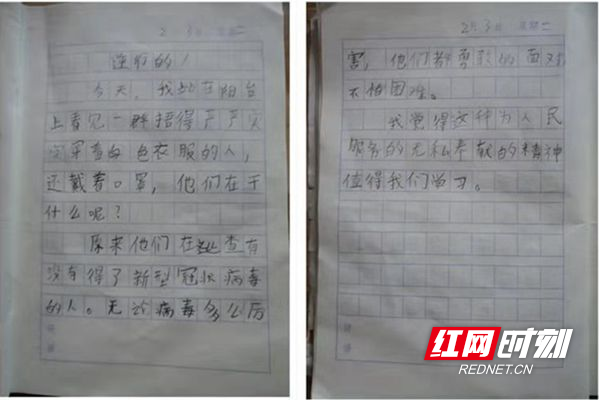 2 3日 星期二
逆行的!
今天，我站在阳台
上看见一群捂得严严实
实穿着白色衣服的人，
还戴着口罩，他们在干
什么呢？
原来他们在 查有
没有得了新型冠状病毒
的人。无论病毒多么厉
2月3日 星期二
害，他们都勇敢的面对，
不怕困难。
我觉得这种为人民
服务的无私奉献的精神
值得我们学习。
红网时刻
REDNET.CN